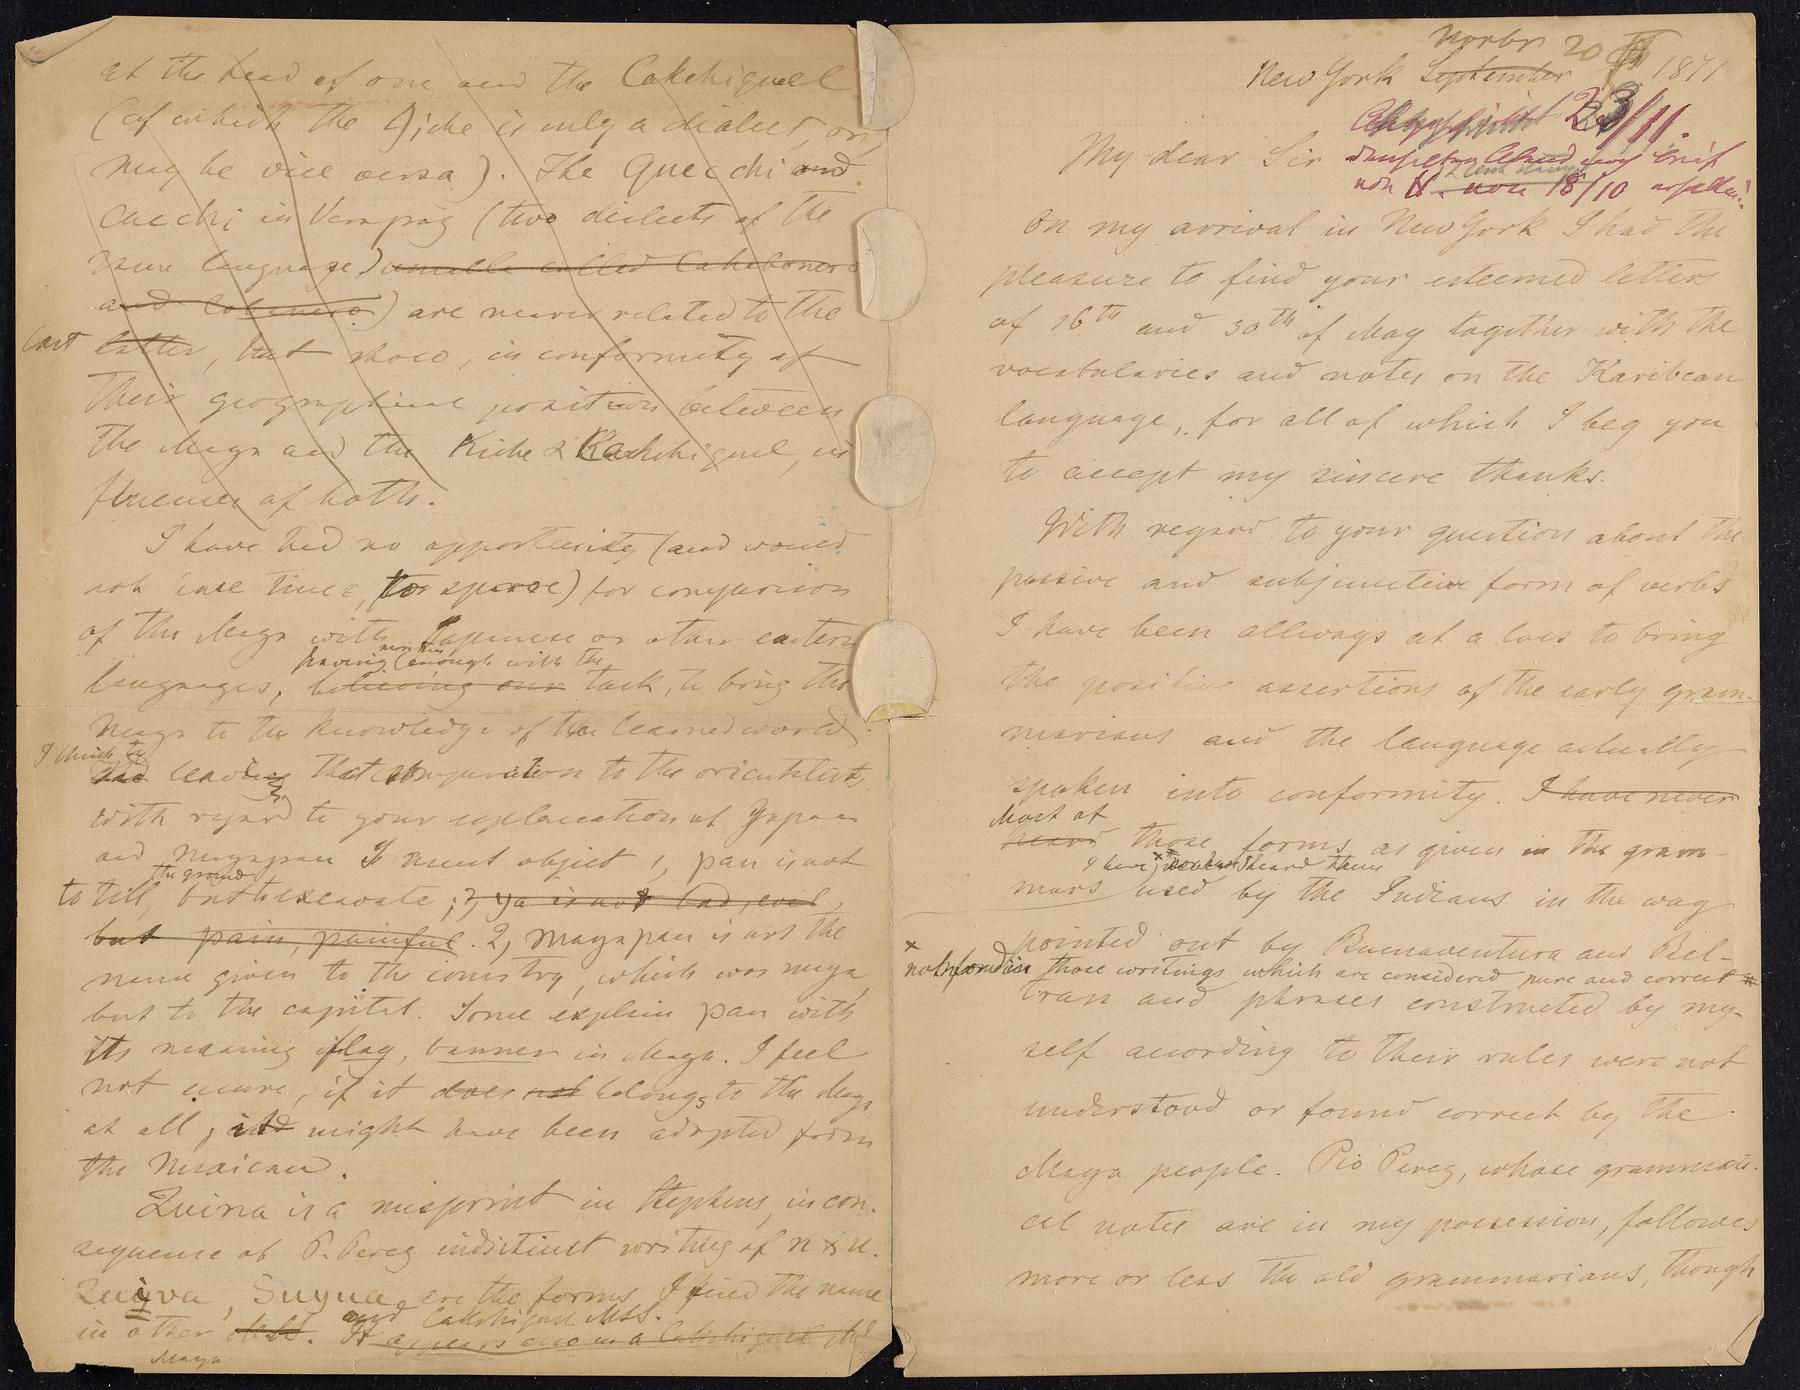 at the head of one and the Cakchiquel
(of which the Qiche is only a dialect, or
may be vice versa). The Quecchi and
Cacchi in Verapaz (two dialects of the
same language) usually called Cakchoners
and Cobaneros) are nearer related to the
last latter, but show, in conformity of
their geographical position between
the Maya and the Kiche & Kachchiquel, in
fluences of both.
I have had no opportunity (and would
not have time, to spare) for comparison
of the Maya with Japanese or other eastern
having enough with the
languages, believing our task, to bring the
Maya to the knowledge of the learned world
I think to
and leaving that comparation to the orientalists.
With regard to your explanation of Yapan
and Mayapan I must object 1, pan is not
the ground
to till, but to excavate; 2, ya is not bad, evil,
but pain, painful. 2, Mayapan is not the
name given to the country, which was maya,
but to the capital. Some explain pan with
its meaning flag, banner in Maya. I feel
not secure, if it does not belongs to the Maya
at all, it might have been adopted from
the Mexican.
Zuina is a misprint in Stephens, in con-
sequence of P. Perez indistinct writing of n & u.
Zuiva, Suyua are the forms I find the name
and Cakchiquel MSS.
in other MSS. It appears also in a Cakchiquel MS
Maya
Novbr 20th
New York September 1871
23/11.
18/10
My dear Sir
On my arrival in New York I had the
pleasure to find your esteemed letters
of 16th and 30th of May together with the
vocabularies and notes on the Karibean
language, for all of which I beg you
to accept my sincere thanks.
With regard to your question about the
passive and subjunctive form of verbs
I have been allways at a loss to bring
the positive assertions of the early gram-
marians and the language actually
spoken into conformity. I have never
Most of
heard those forms as given in the gram-
I have heard them
mars used by the Indians in the way
pointed out by Buenaventura and Bel-
not found in those writings which are considered pure and correct
tran and phrases constructed by my-
self acording to their rules were not
understood or found correct by the
Maya people. Pio Perez, whose grammati-
cal notes are in my possession, follows
more or less the old grammarians, though